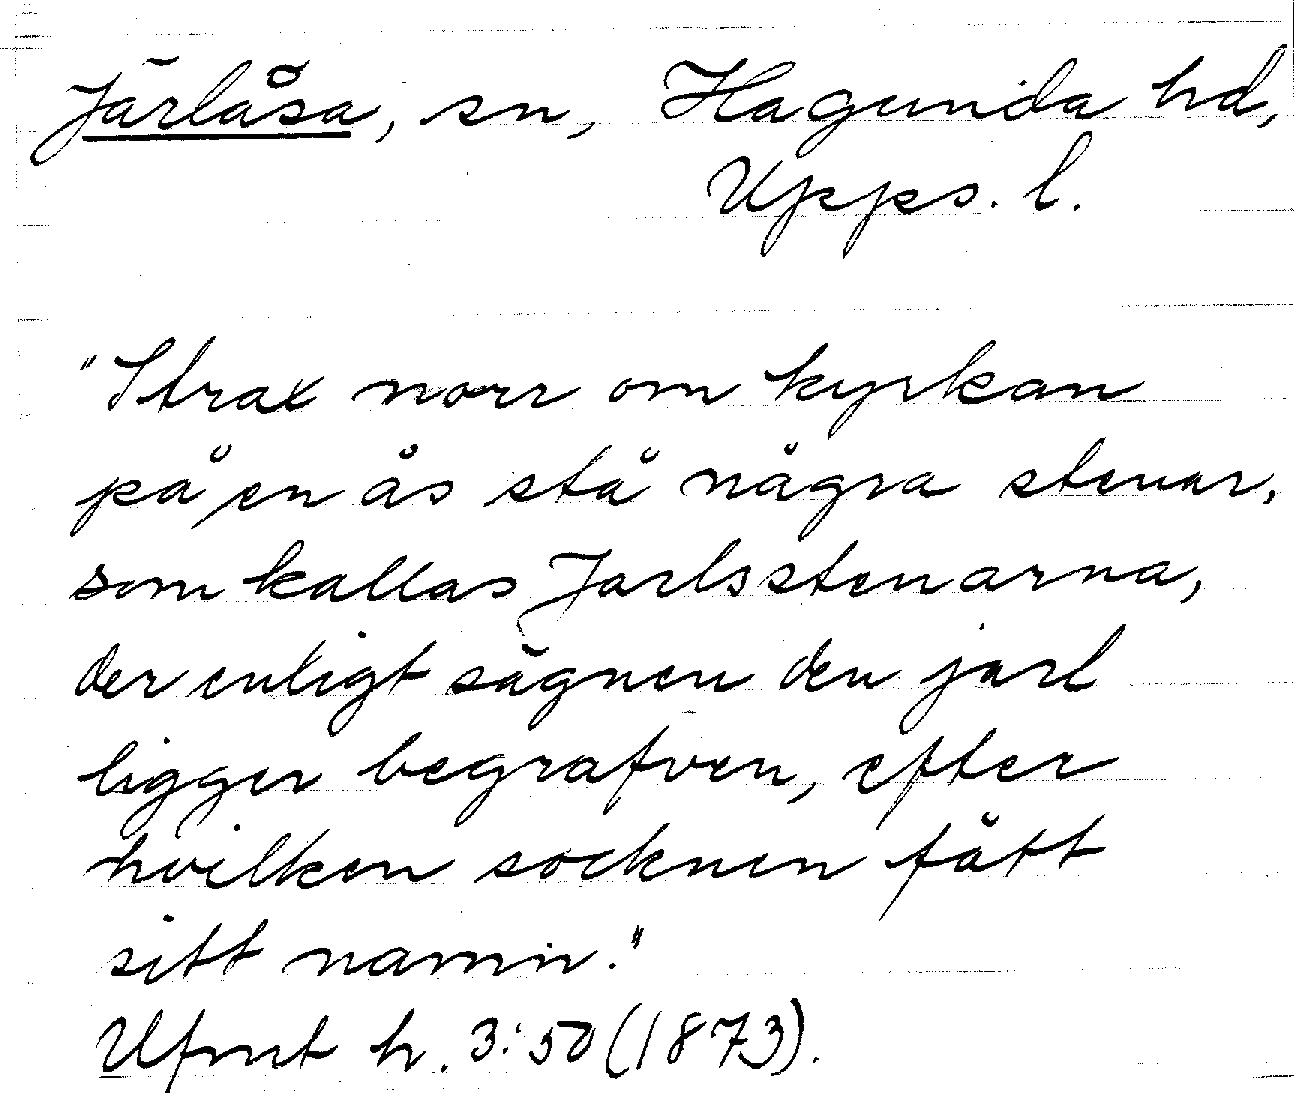 Järlåsa, sn, Hagunda hd,
Upps. l.
"Strax norr om kyrkan
på en ås stå några stenar,
som kallas Jarlsstenarna,
der enligt sägnen den jarl
ligger begrafven, efter
hvilken socknen fått
sitt namn."
Ufmt h. 3:50 (1873).